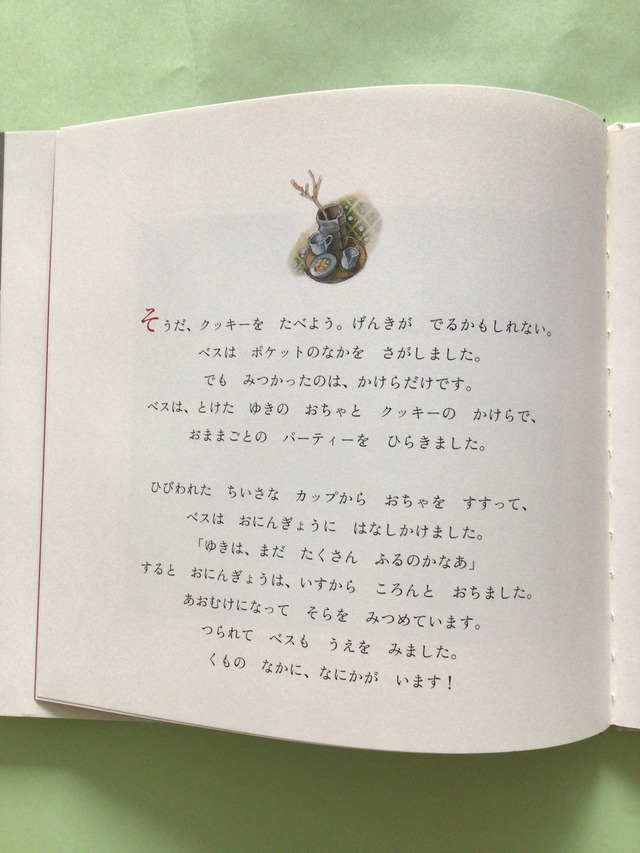 そうだ、クッキーを　たべよう。げんきが　でるかもしれない。
ベスは　ポケットのなかを　さがしました。
でも　みつかったのは、かけらだけです。
ベスは、とけた　ゆきの　おちゃと　クッキーの　かけらで、
おままごとの　パーティーを　ひらきました。
ひびわれた　ちいさな　カップから　おちゃを　すすって、
ベスは　おにんぎょうに　はなしかけました。
「ゆきは、まだ　たくさん　ふるのかなあ」
すると　おにんぎょうは、いすから　ころんと　おちました。
あおむけになって　そらを　みつめています。
つられて　ベスも　うえを　みました。
くもの　なかに、なにかが　います！